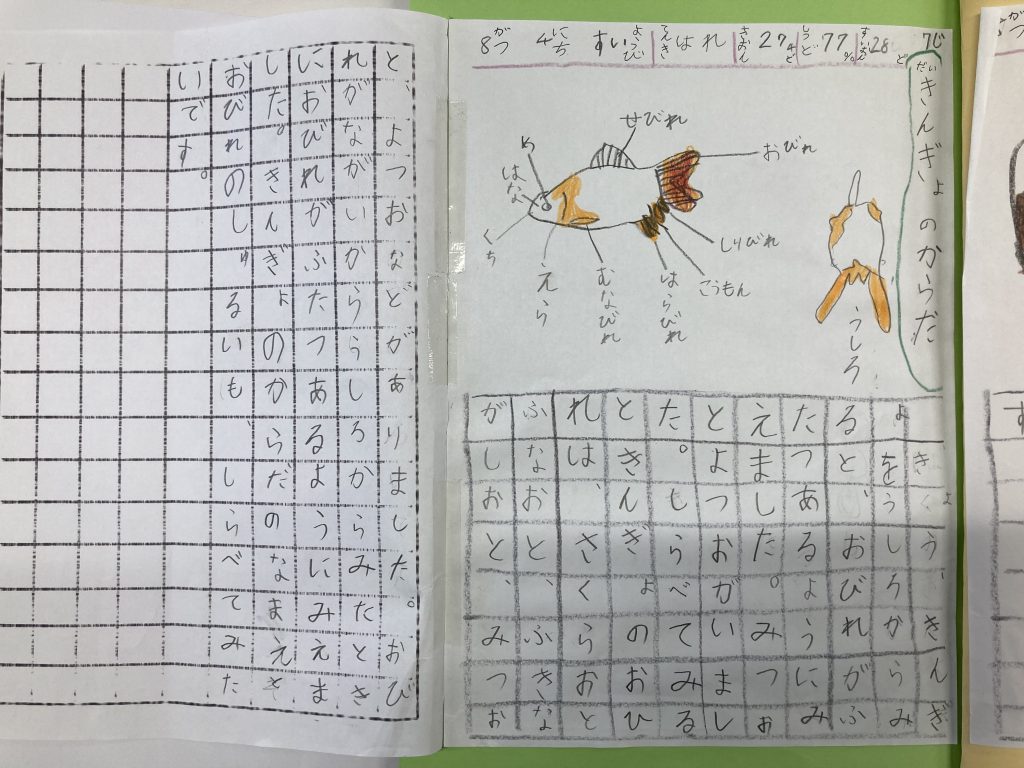 8がつ 4にち すいようび てんき はれ きおん 27 4ど しつど 77% すいおん 28ど 7じ
だい きんぎょのからだ
せびれ
おびれ
め
はな
くち
えら
むなびれ
はらびれ
こうもん
しりびれ
うしろ
きょう、きんぎ
ょをうしろからみ
ると、おびれがふ
たつあるょうにみ
えました。みつぉ
とよつおがいまし
た。しらべてみる
ときんぎょのおひ
れは、さくらおと
ふなおと、ふきな
がしおと、みつお
と、よつおなどがありました。おび
れがながいからうしろからみたとき
におびれがふたつあるようにみえま
した。きんぎょのからだのなまえと
おびれのしゅるいも、しらべてみた
いです。